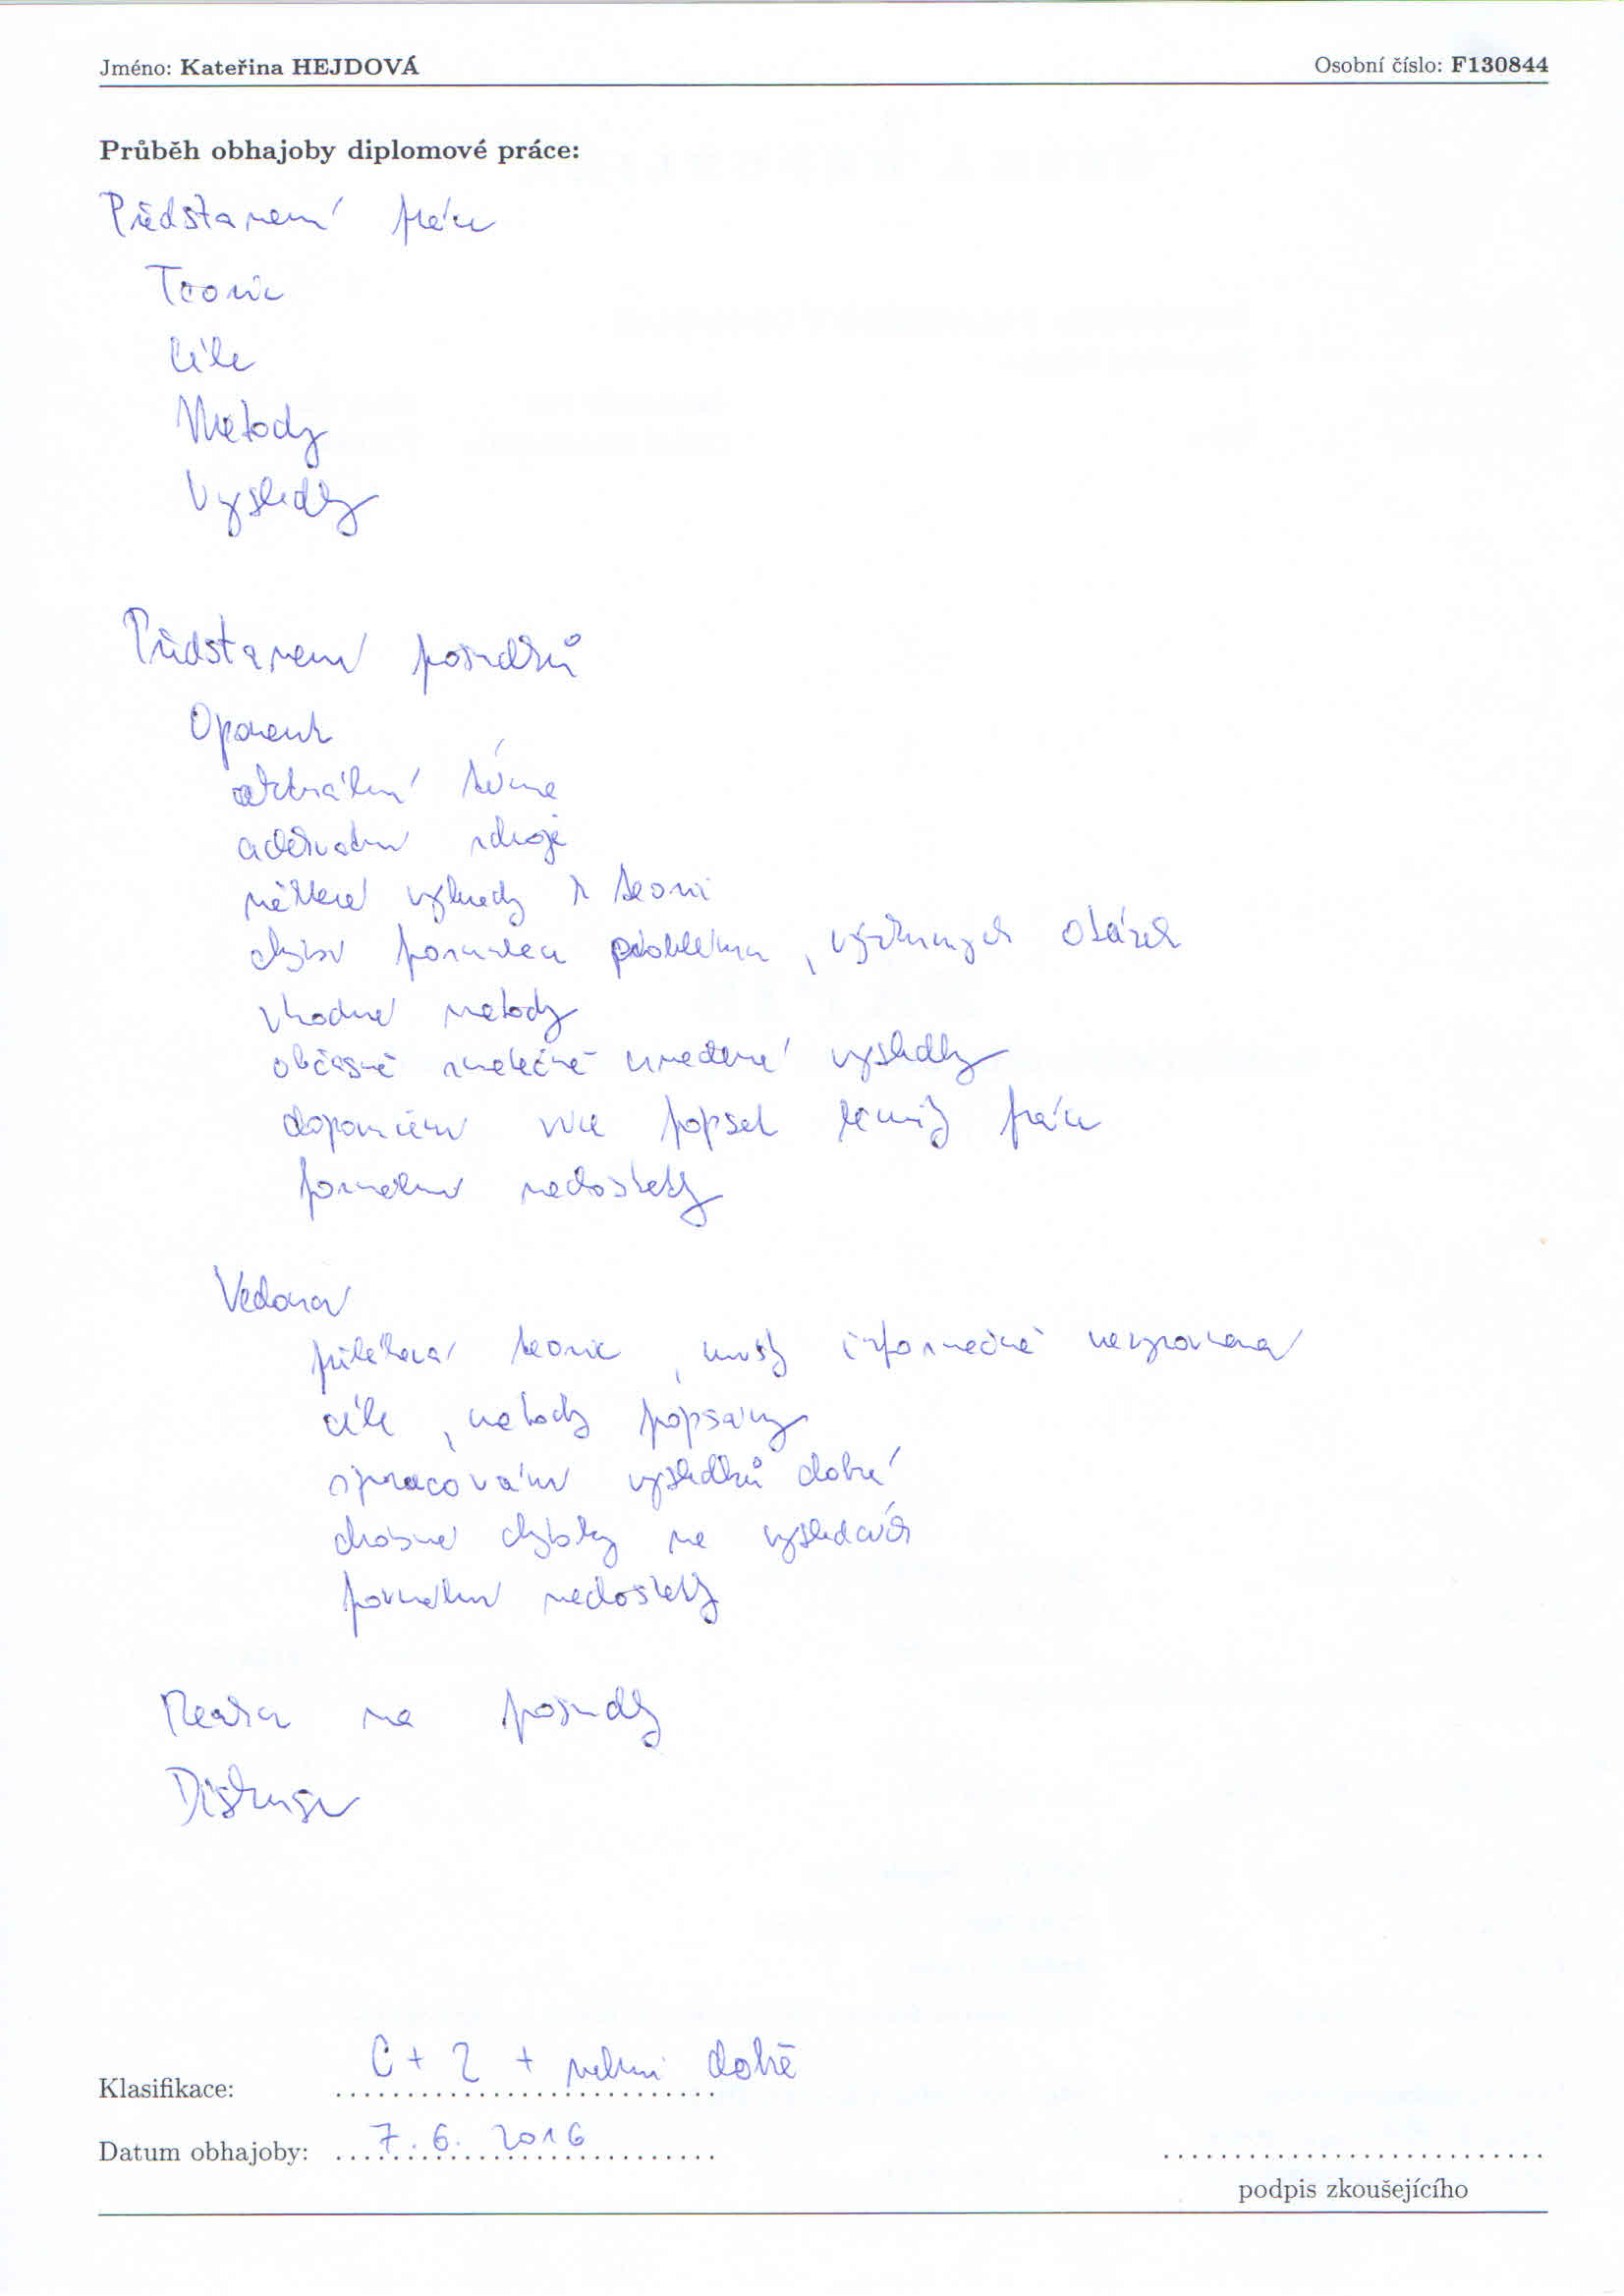 Jméno: Kateřina HEJDOVÁ Osobní číslo: F130844
Průběh obhajoby diplomové práce:
Představení práce
Teorie
Cíle
Metody
Výsledky
Představení posudků
Oponent
aktuální téma
adekvátní zdroje
některé výhrady k teorii
chybí formulace problému, výzkumných otázek
vhodné metody
občas uvedené výsledky
doporučení více popsat
formální nedostatky
Vedoucí
teorie, informačně
cíle, metody popsány
zpracování výsledků dobré
drobné chybky ve výsledcích
formální nedostatky
Reakce na posudky
Diskuse
Klasifikace: C + 2 + velmi dobře
Datum obhajoby: 7. 6. 2016
podpis zkoušejícího